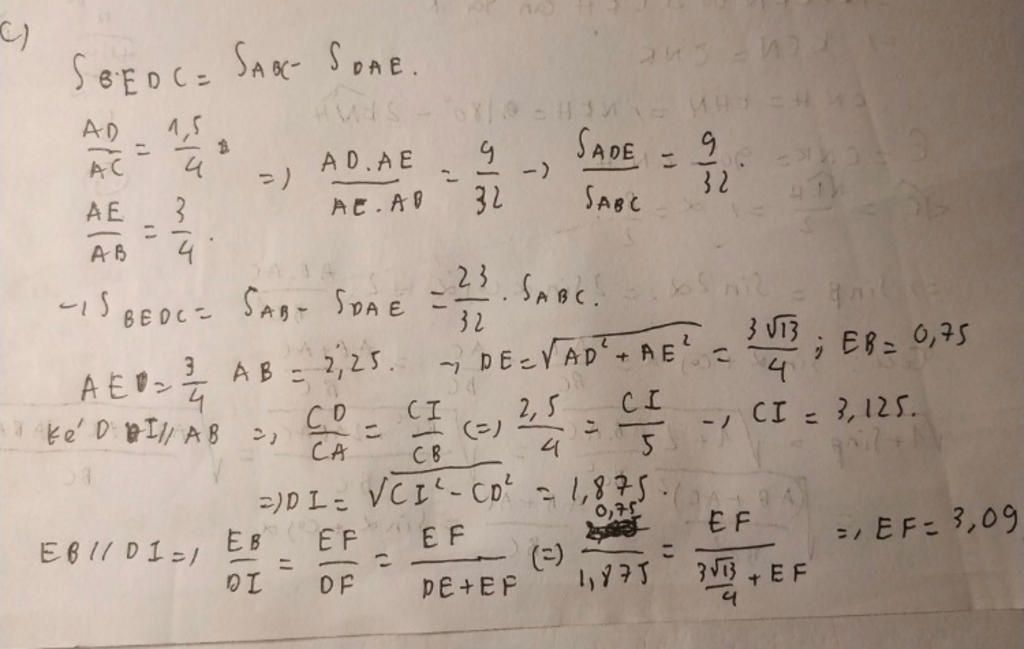 c)
S BEDC = S ABC - S DAE.
AD/AC = 1,5/4
AE/AB = 3/4. => AD.AE/AC.AB = 9/32 -> S ADE/S ABC = 9/32.
-> S BEDC = S AB - S DAE = 23/32 . S ABC.
AE = 3/4 AB = 2,25. -> DE = √(AD² + AE²) = 3√13/4 ; EB = 0,75
Kẻ DI // AB => CD/CA = CI/CB (=) 2,5/4 = CI/5 -> CI = 3,125.
=> DI = √(CI² - CD²) = 1,875.
EB // DI => EB/DI = EF/DF = EF/(DE + EF) (=) 0,75/1,875 = EF/(3√13/4 + EF) => EF = 3,09